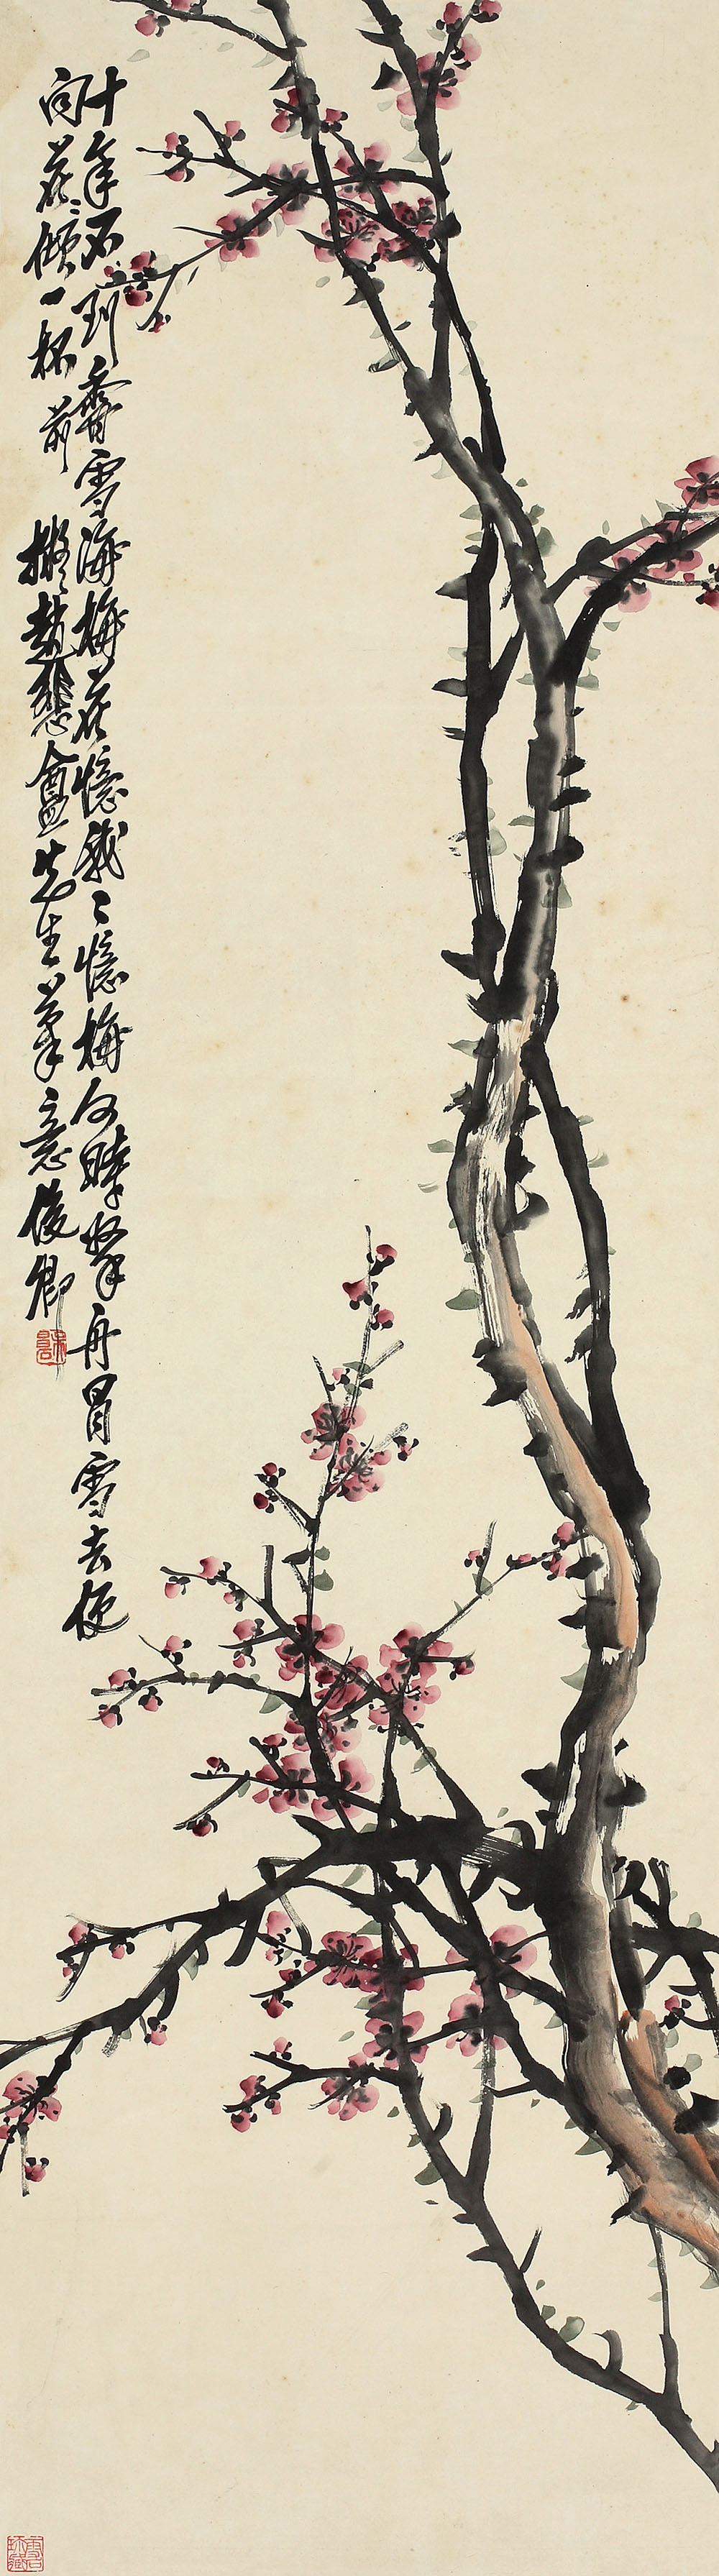 十年不到香雪海梅花憶我々憶梅何時挐舟冒雪去便
向花傾一杯前 擬趙悲盦先生筆意俊卿